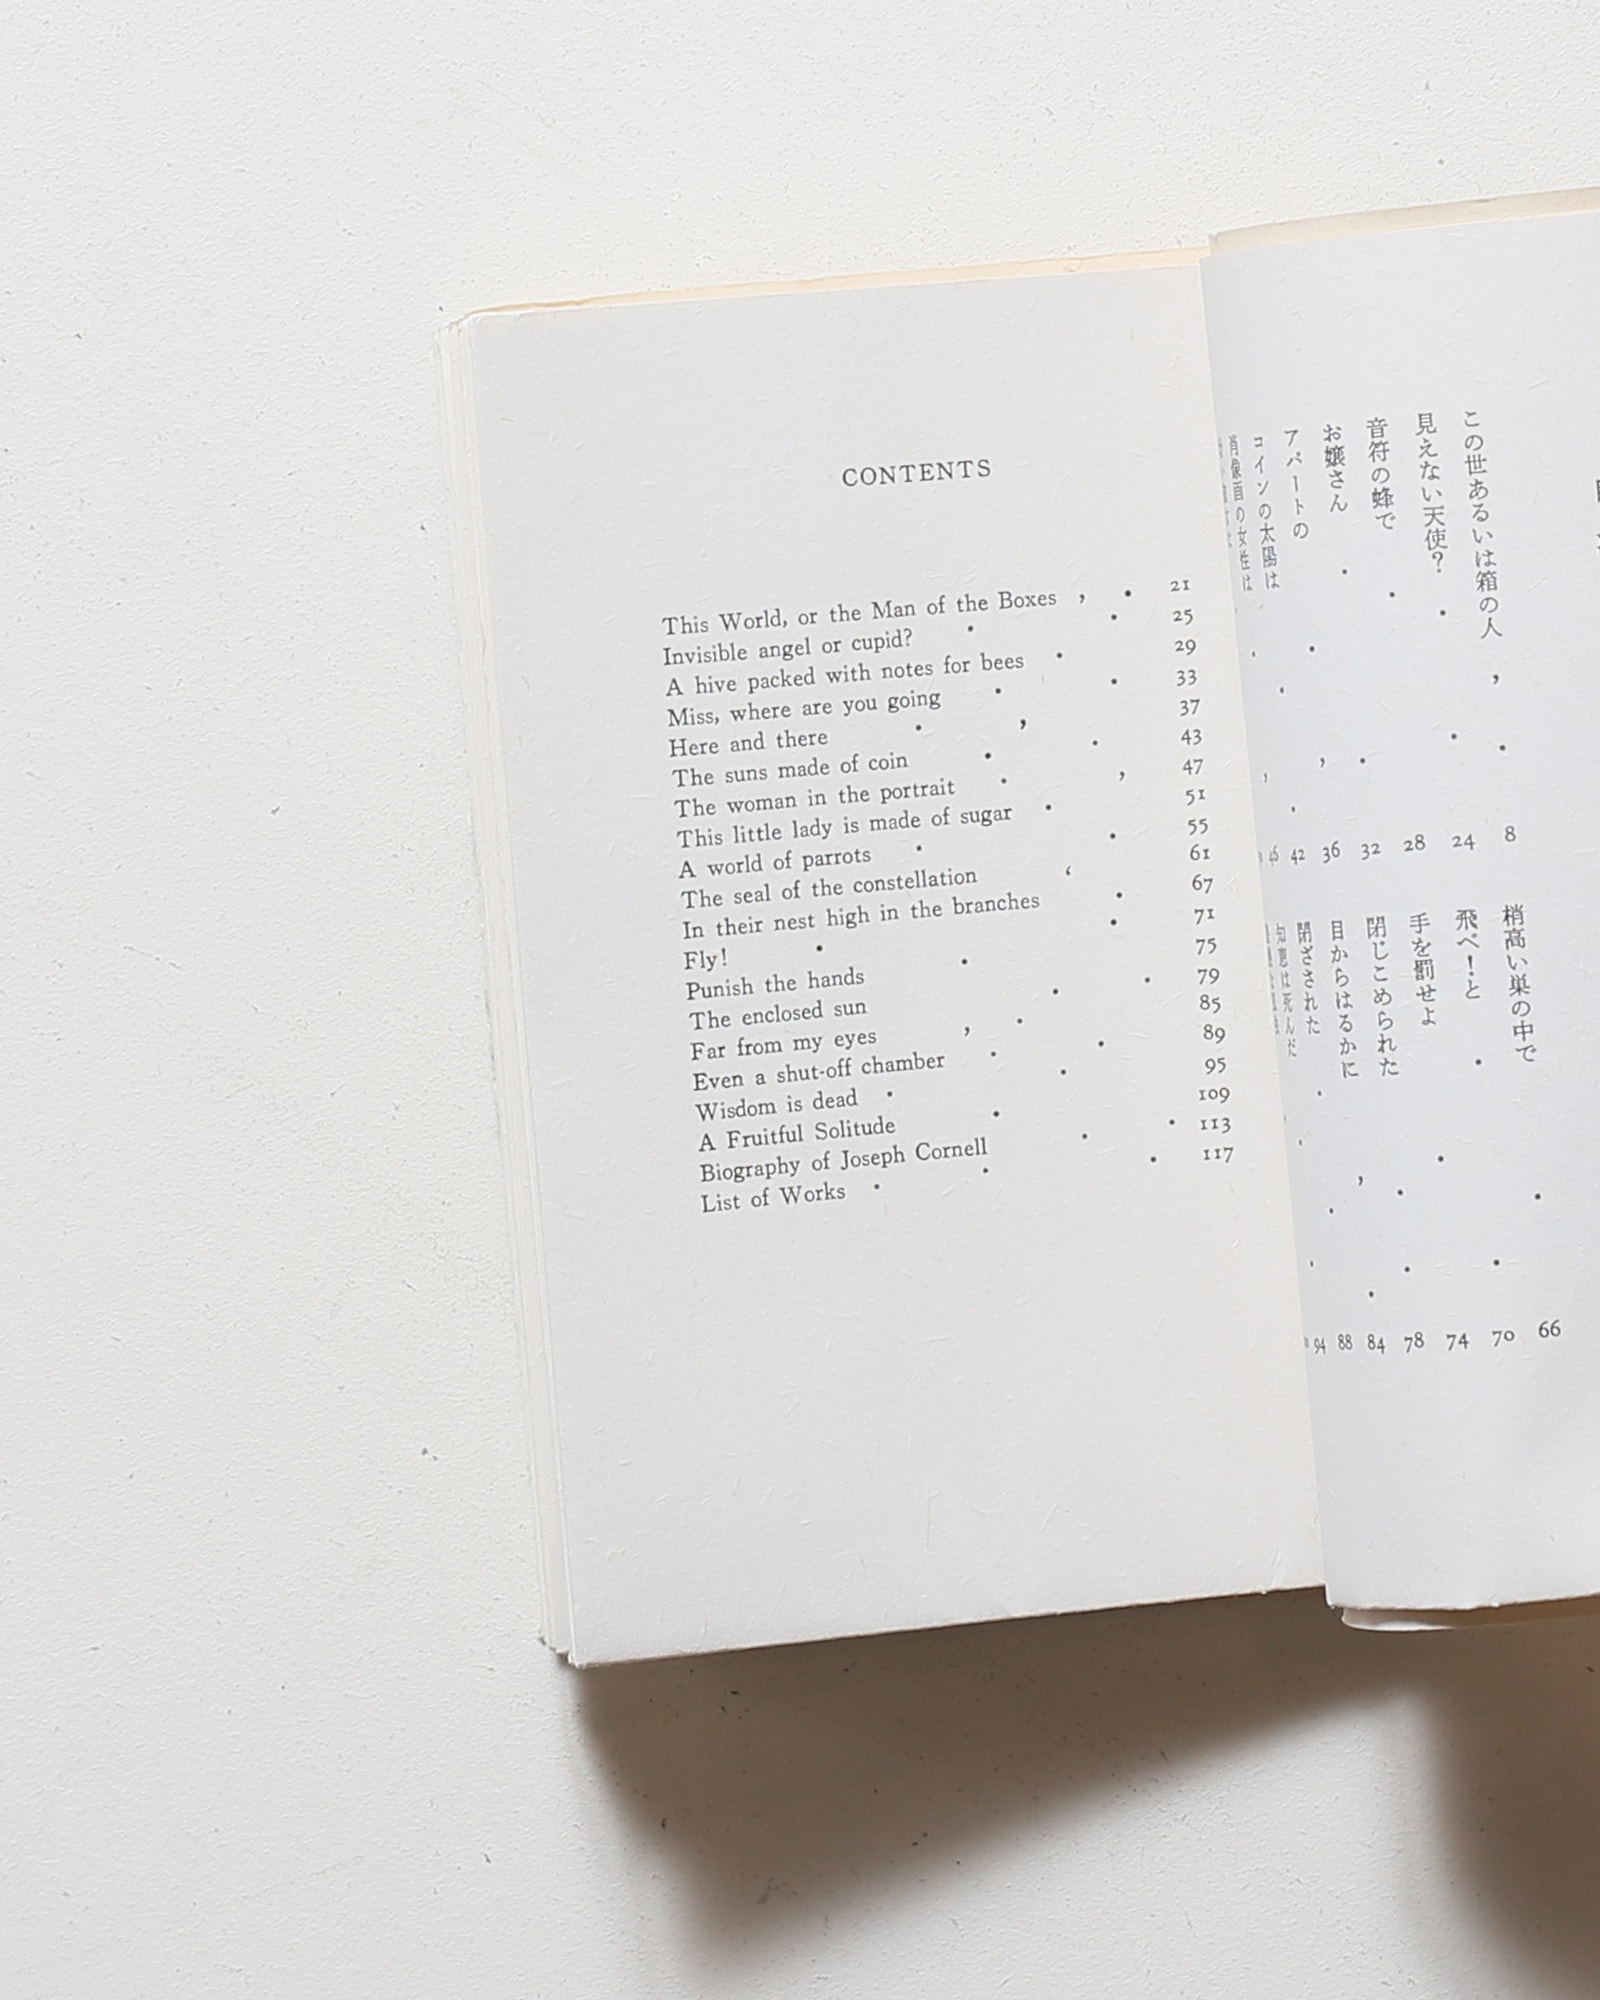 CONTENTS
This World, or the Man of the Boxes 21
Invisible angel or cupid? 25
A hive packed with notes for bees 29
Miss, where are you going 33
Here and there 37
The suns made of coin 43
The woman in the portrait 47
This little lady is made of sugar 51
A world of parrots 55
The seal of the constellation 61
In their nest high in the branches 67
Fly! 71
Punish the hands 75
The enclosed sun 79
Far from my eyes 85
Even a shut-off chamber 89
Wisdom is dead 95
A Fruitful Solitude 109
Biography of Joseph Cornell 113
List of Works 117
この世あるいは箱の人 8
見えない天使? 24
音符の蜂で 28
お嬢さん 32
アパートの 36
コインの太陽は 42
肖像画の女性は 46
梢高い巣の中で 66
飛べ!と 70
手を罰せよ 74
閉じこめられた 78
目からはるかに 84
閉ざされた 88
知恵は死んだ 94